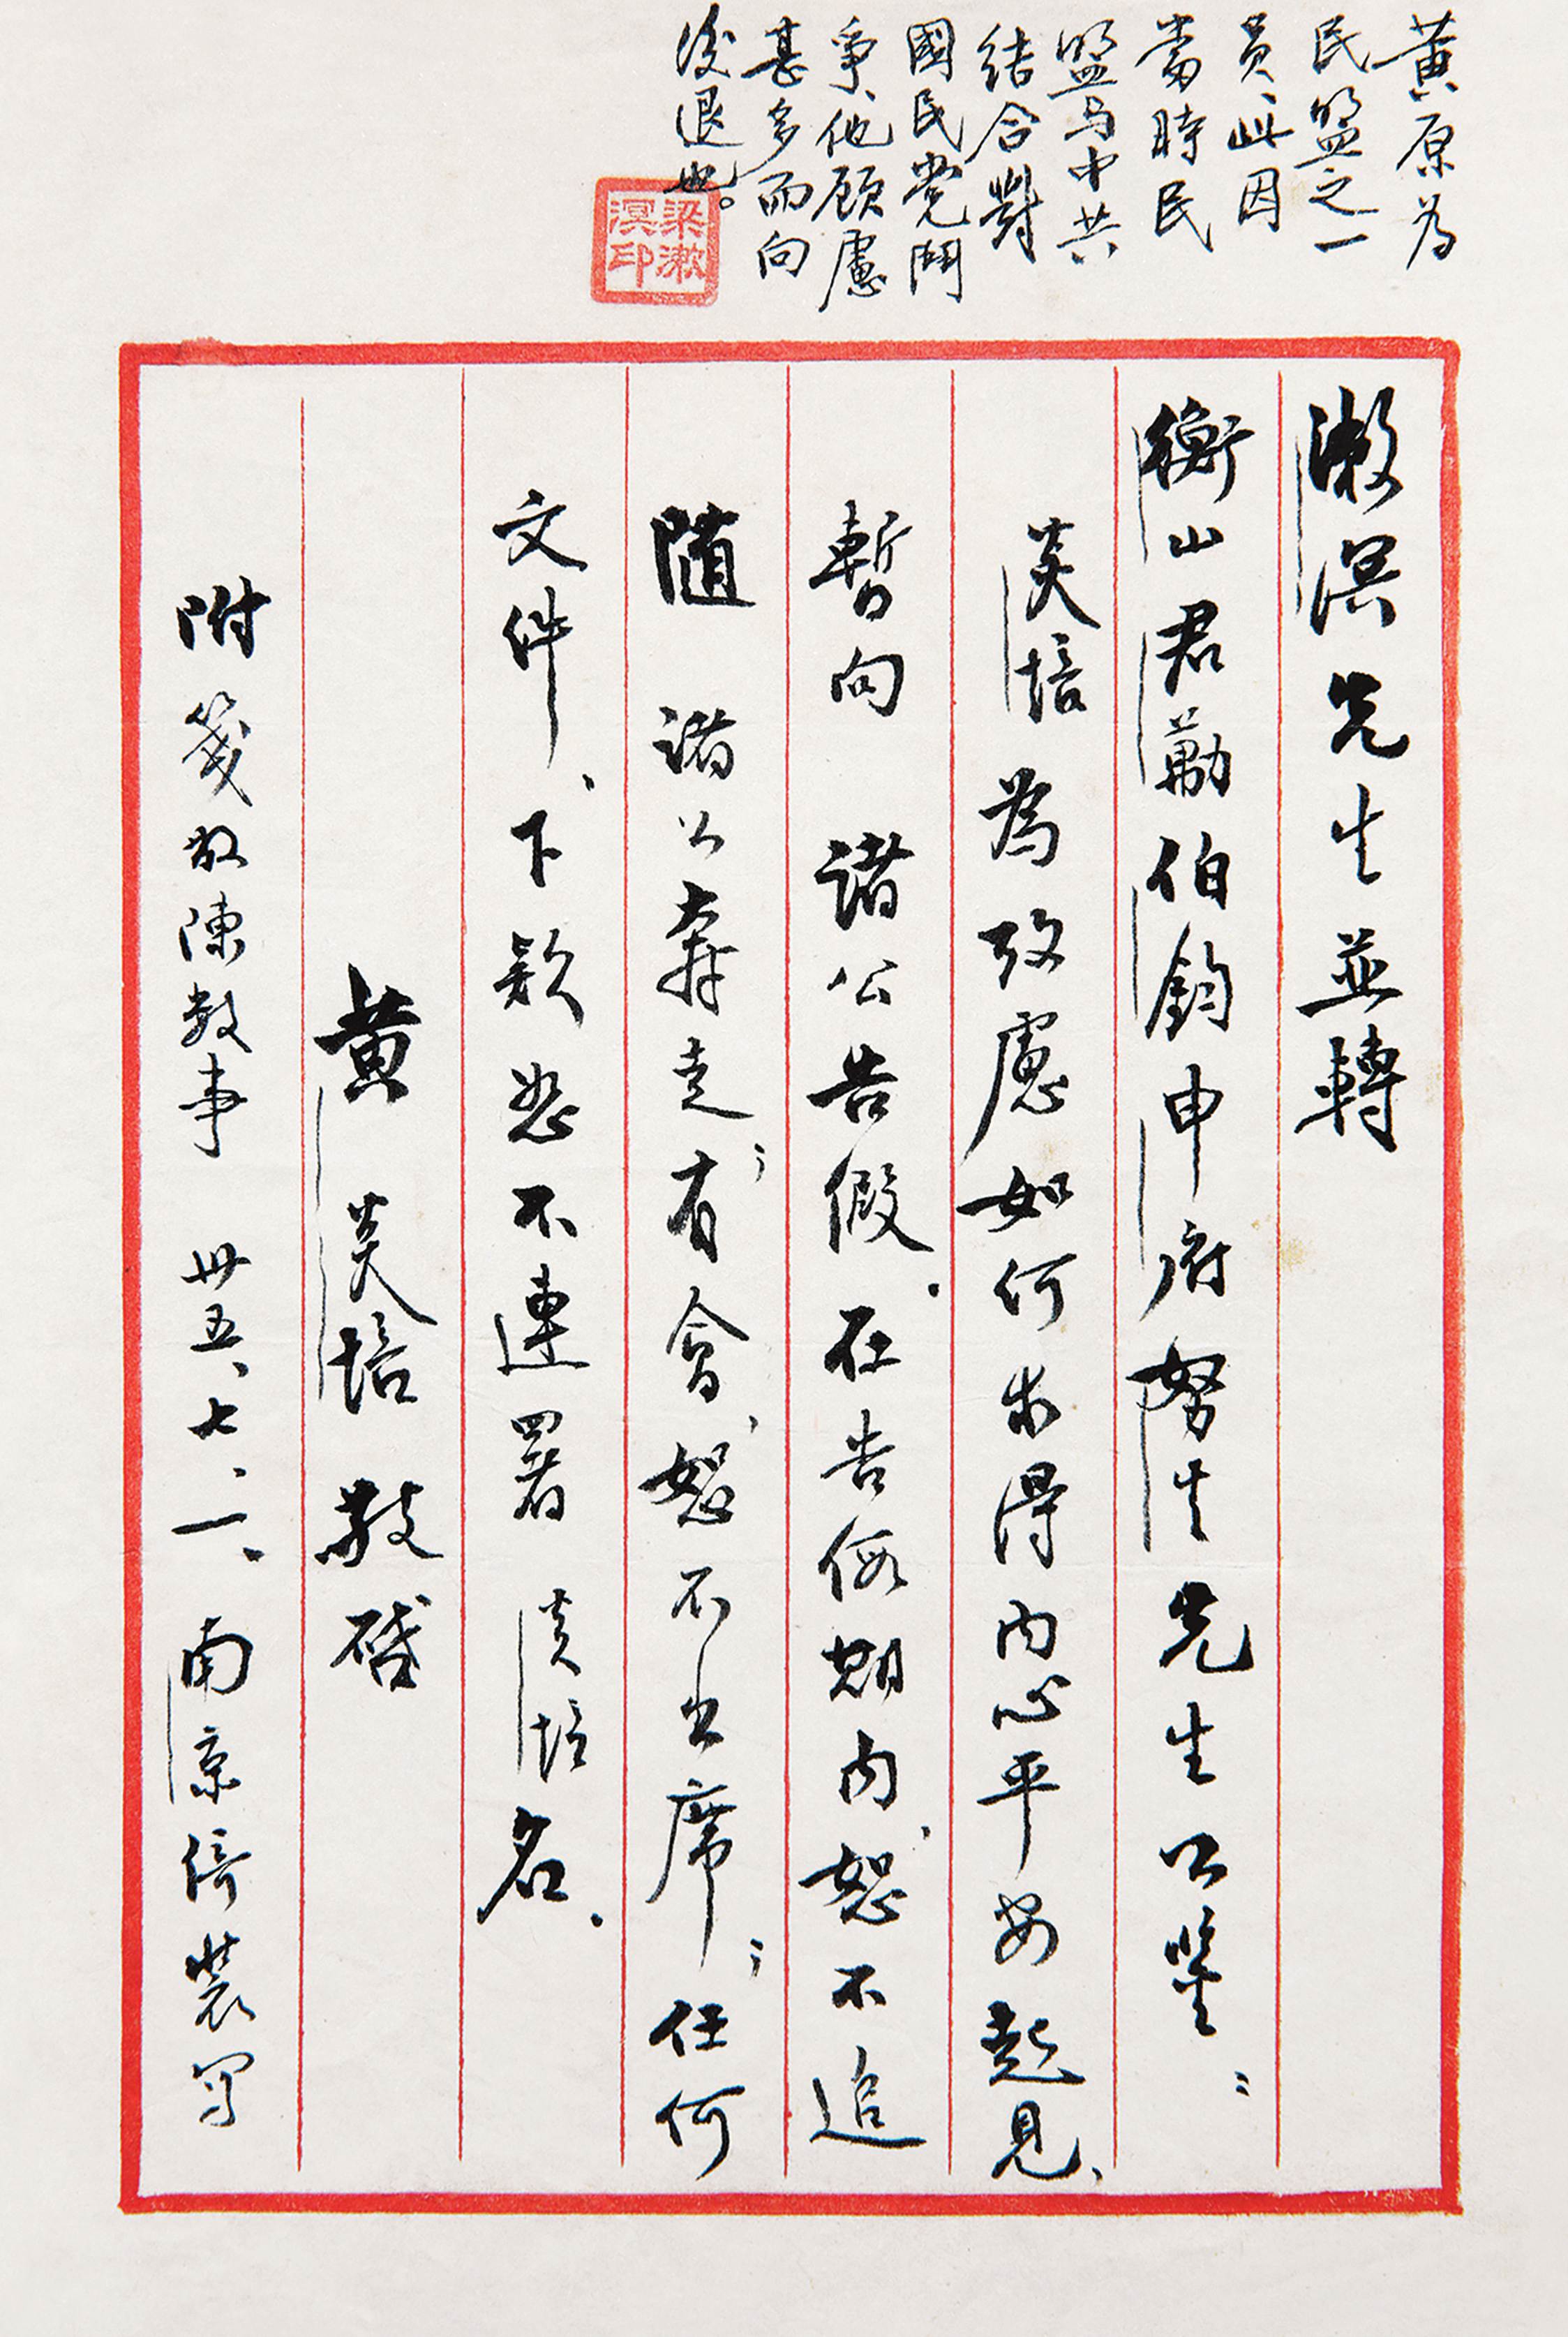 黃原为
民盟之一
员、此因
當時民
盟与中共
结合對
國民党鬥
爭、他顾慮
甚多而向
後退也。
梁漱
溟印
漱溟先生並轉
衡山君勱伯鈞申府努生先生公鑒：
炎培為攷慮如何求得内心平安起見、
暫向 諸公告假．在告假期内、恕不追
隨 諸公奔走；有會、恕不出席；任何
文件、下款恕不連署 炎培名．
黃炎培敬启
附箋敬陳数事 卅五、七、一、南京倚装写